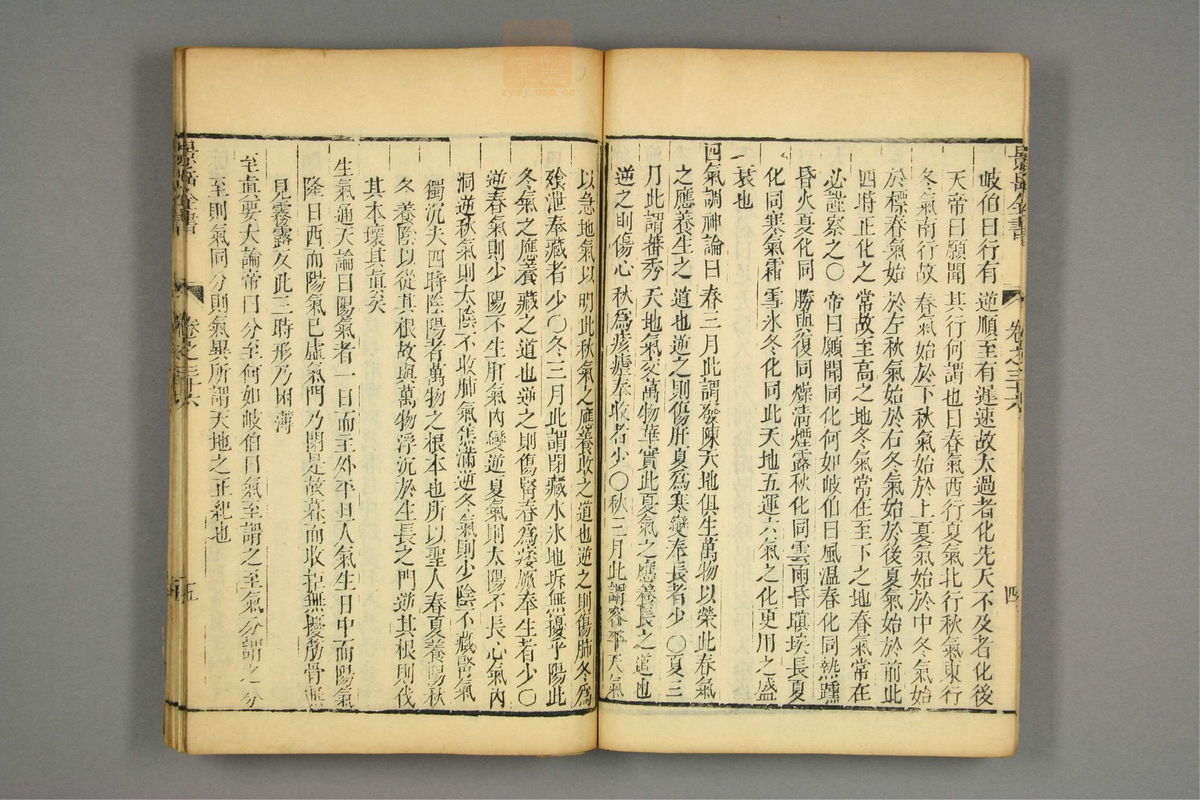 景岳全書 卷之三十六 四
岐伯曰行有逆順至有遲速故太過者化先天不及者化後
天帝曰願聞其行何謂也曰春氣西行夏氣北行秋氣東行
冬氣南行故春氣始於下秋氣始於上夏氣始於中冬氣始
於標春氣始於左秋氣始於右冬氣始於後夏氣始於前此
四時正化之常故至高之地冬氣常在至下之地春氣常在
必謹察之〇帝曰願聞同化何如岐伯曰風溫春化同熱曛
昏火夏化同勝與復同燥清煙露秋化同雲雨昏暝埃長夏
化同寒氣霜雪氷冬化同此天地五運六氣之化更用之盛
衰也
四氣調神論曰春三月此謂發陳天地俱生萬物以榮此春氣
之應養生之道也逆之則傷肝夏爲寒變奉長者少〇夏三
月此謂蕃秀天地氣交萬物華實此夏氣之應養長之道也
逆之則傷心秋爲痎瘧奉收者少〇秋三月此謂容平天氣
以急地氣以明此秋氣之應養收之道也逆之則傷肺冬爲
飱泄奉藏者少〇冬三月此謂閉藏水氷地坼無擾乎陽此
冬氣之應養藏之道也逆之則傷腎春爲痿厥奉生者少〇
逆春氣則少陽不生肝氣內變逆夏氣則太陽不長心氣內
洞逆秋氣則太陰不收肺氣焦滿逆冬氣則少陰不藏腎氣
獨沉夫四時陰陽者萬物之根本也所以聖人春夏養陽秋
冬養陰以從其根故與萬物浮沉於生長之門逆其根則伐
其本壞其眞矣
生氣通天論曰陽氣者一日而主外平旦人氣生日中而陽氣
隆日西而陽氣巳虛氣門乃閉是故暮而收拒無擾筋骨無
見霧露反此三時形乃困薄
至眞要大論帝曰分至何如岐伯曰氣至謂之至氣分謂之分
至則氣同分則氣異所謂天地之正紀也
景岳全書 卷之三十六 五